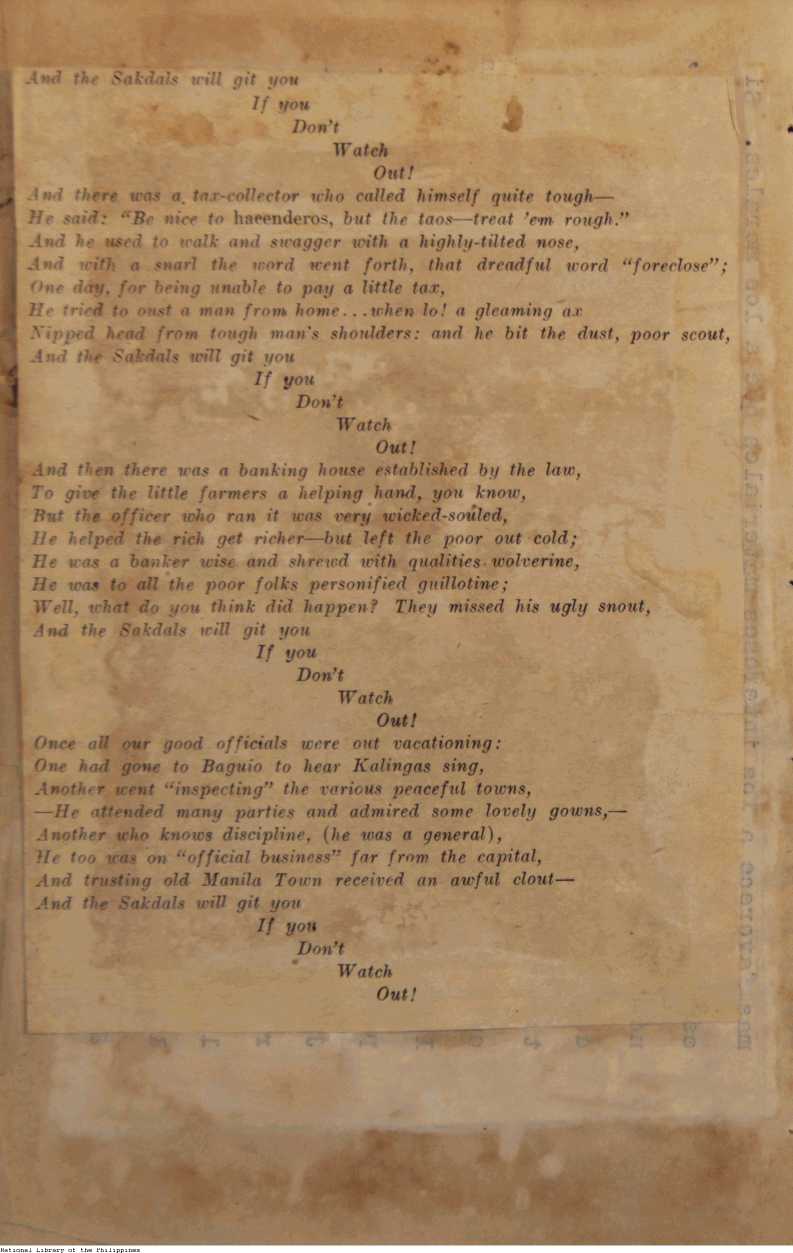 And the Sakdals will git you
If you
Don't
Watch
Out!
And there was a tax-collector who called himself quite tough—
He said: "Be nice to hacenderos, but the taos—treat 'em rough."
And he used to walk and swagger with a highly-tilted nose,
And with a snarl the word went forth, that dreadful word "foreclose";
One day, for being unable to pay a little tax,
He tried to oust a man from home...when lo! a gleaming ax
Nipped head from tough man's shoulders: and he bit the dust, poor scout,
And the Sakdals will git you
If you
Don't
Watch
Out!
And then there was a banking house established by the law,
To give the little farmers a helping hand, you know,
But the officer who ran it was very wicked-souled,
He helped the rich get richer—but left the poor out cold;
He was a banker wise and shrewd with qualities wolverine,
He was to all the poor folks personified guillotine;
Well, what do you think did happen? They missed his ugly snout,
And the Sakdals will git you
If you
Don't
Watch
Out!
Once all our good officials were out vacationing:
One had gone to Baguio to hear Kalingas sing,
Another went "inspecting" the various peaceful towns,
—He attended many parties and admired some lovely gowns,—
Another who knows discipline, (he was a general),
He too was on "official business" far from the capital,
And trusting old Manila Town received an awful clout—
And the Sakdals will git you
If you
Don't
Watch
Out!
National Library of the Philippines